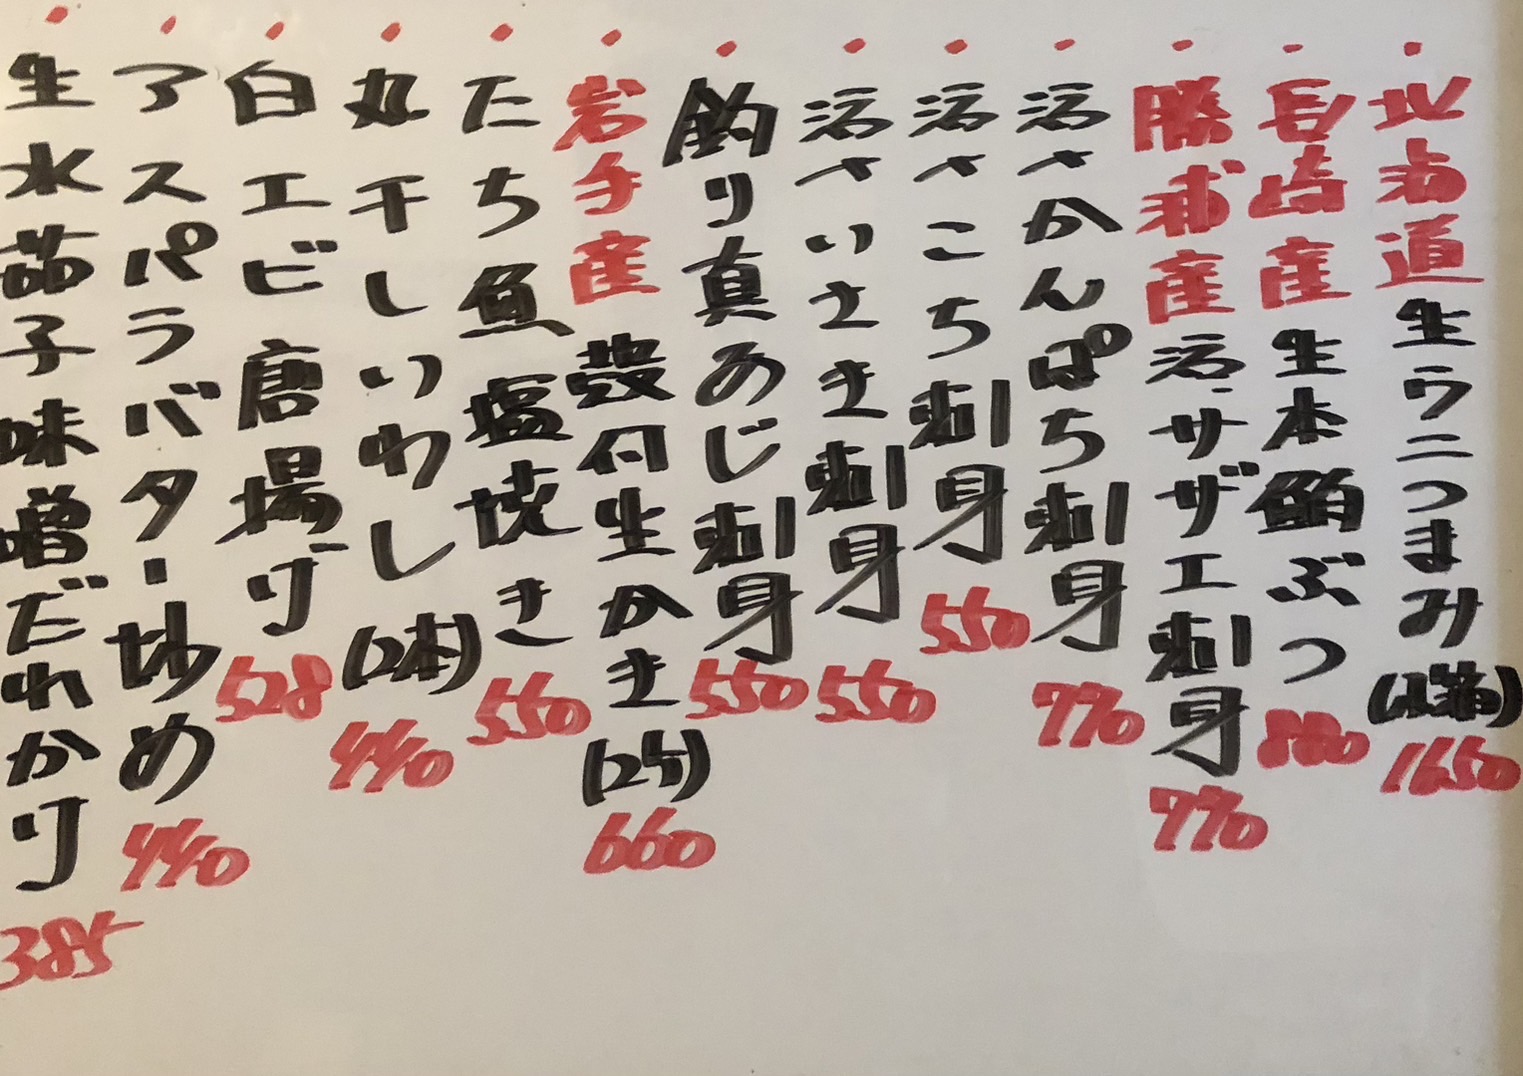 ・北海道生ウニつまみ 1650
・長崎産生本鮪ぶつ 880
・勝浦産活サザエ刺身 770
・活〆かんぱち刺身 770
・活〆こち刺身 550
・活〆いさき刺身 550
・釣り真あじ刺身 550
・岩手産殻付生かき 660
・たち魚塩焼き 550
・丸干しいわし(2本) 440
・白エビ唐揚げ 528
・アスパラバター炒め 440
・生水茄子味噌だれかけ 385